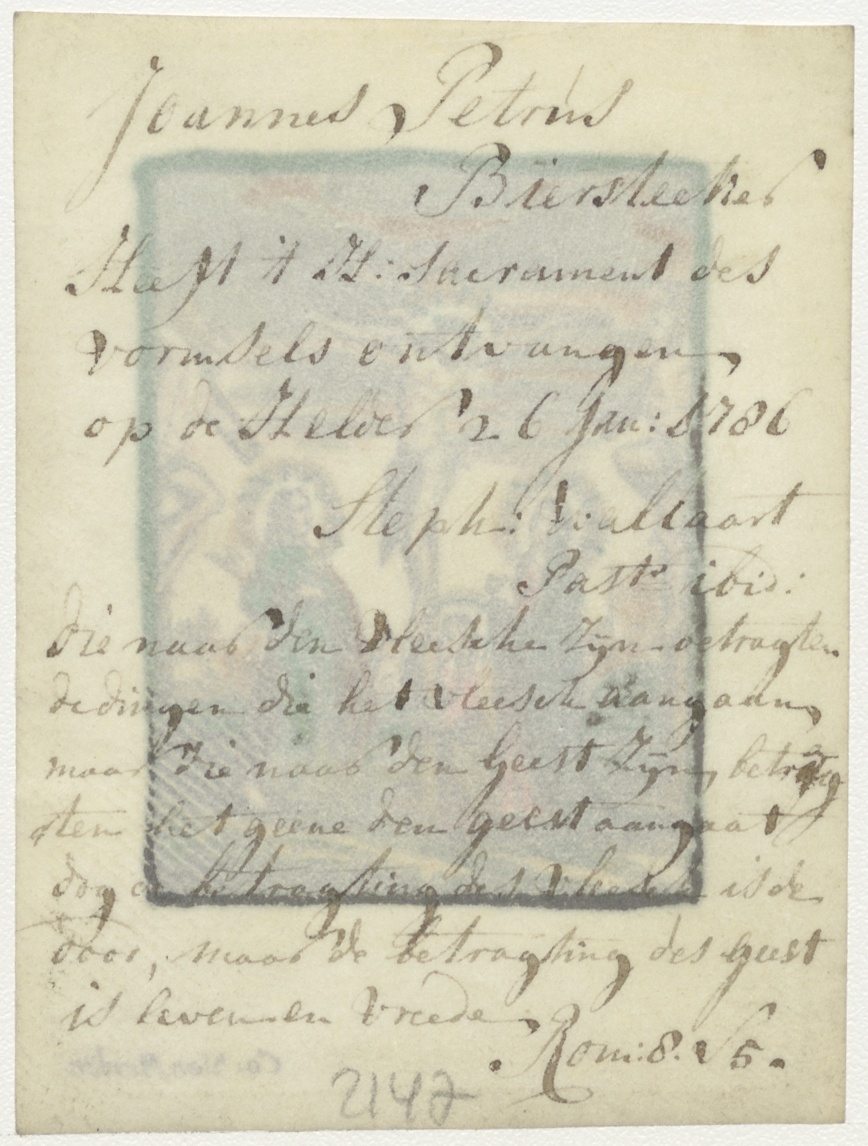 Joannes Petrus
Biersteeker
Heeft 't H: Sacrament des
vormsels ontvangen
op de Helder 26 Jan: 1786
Steph: Wallaart
Past: ibid:
die naar den vleesche zyn betragten
de dingen die het vleesch aangaan,
maar die naar den geest zyn, betrag
ten het geene den geest aangaat
dog de betragting des vleesch is de
door, maar de betragting des geest
is leven en vreede
Rom: 8. V 5.
2147